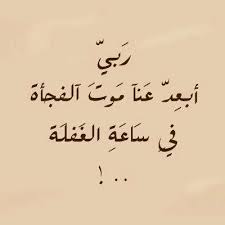 رَبيّ
أبعِدّ عَنآ مَوتَ آلفجأة
في سَاعَةِ الغَفلَة
.. !